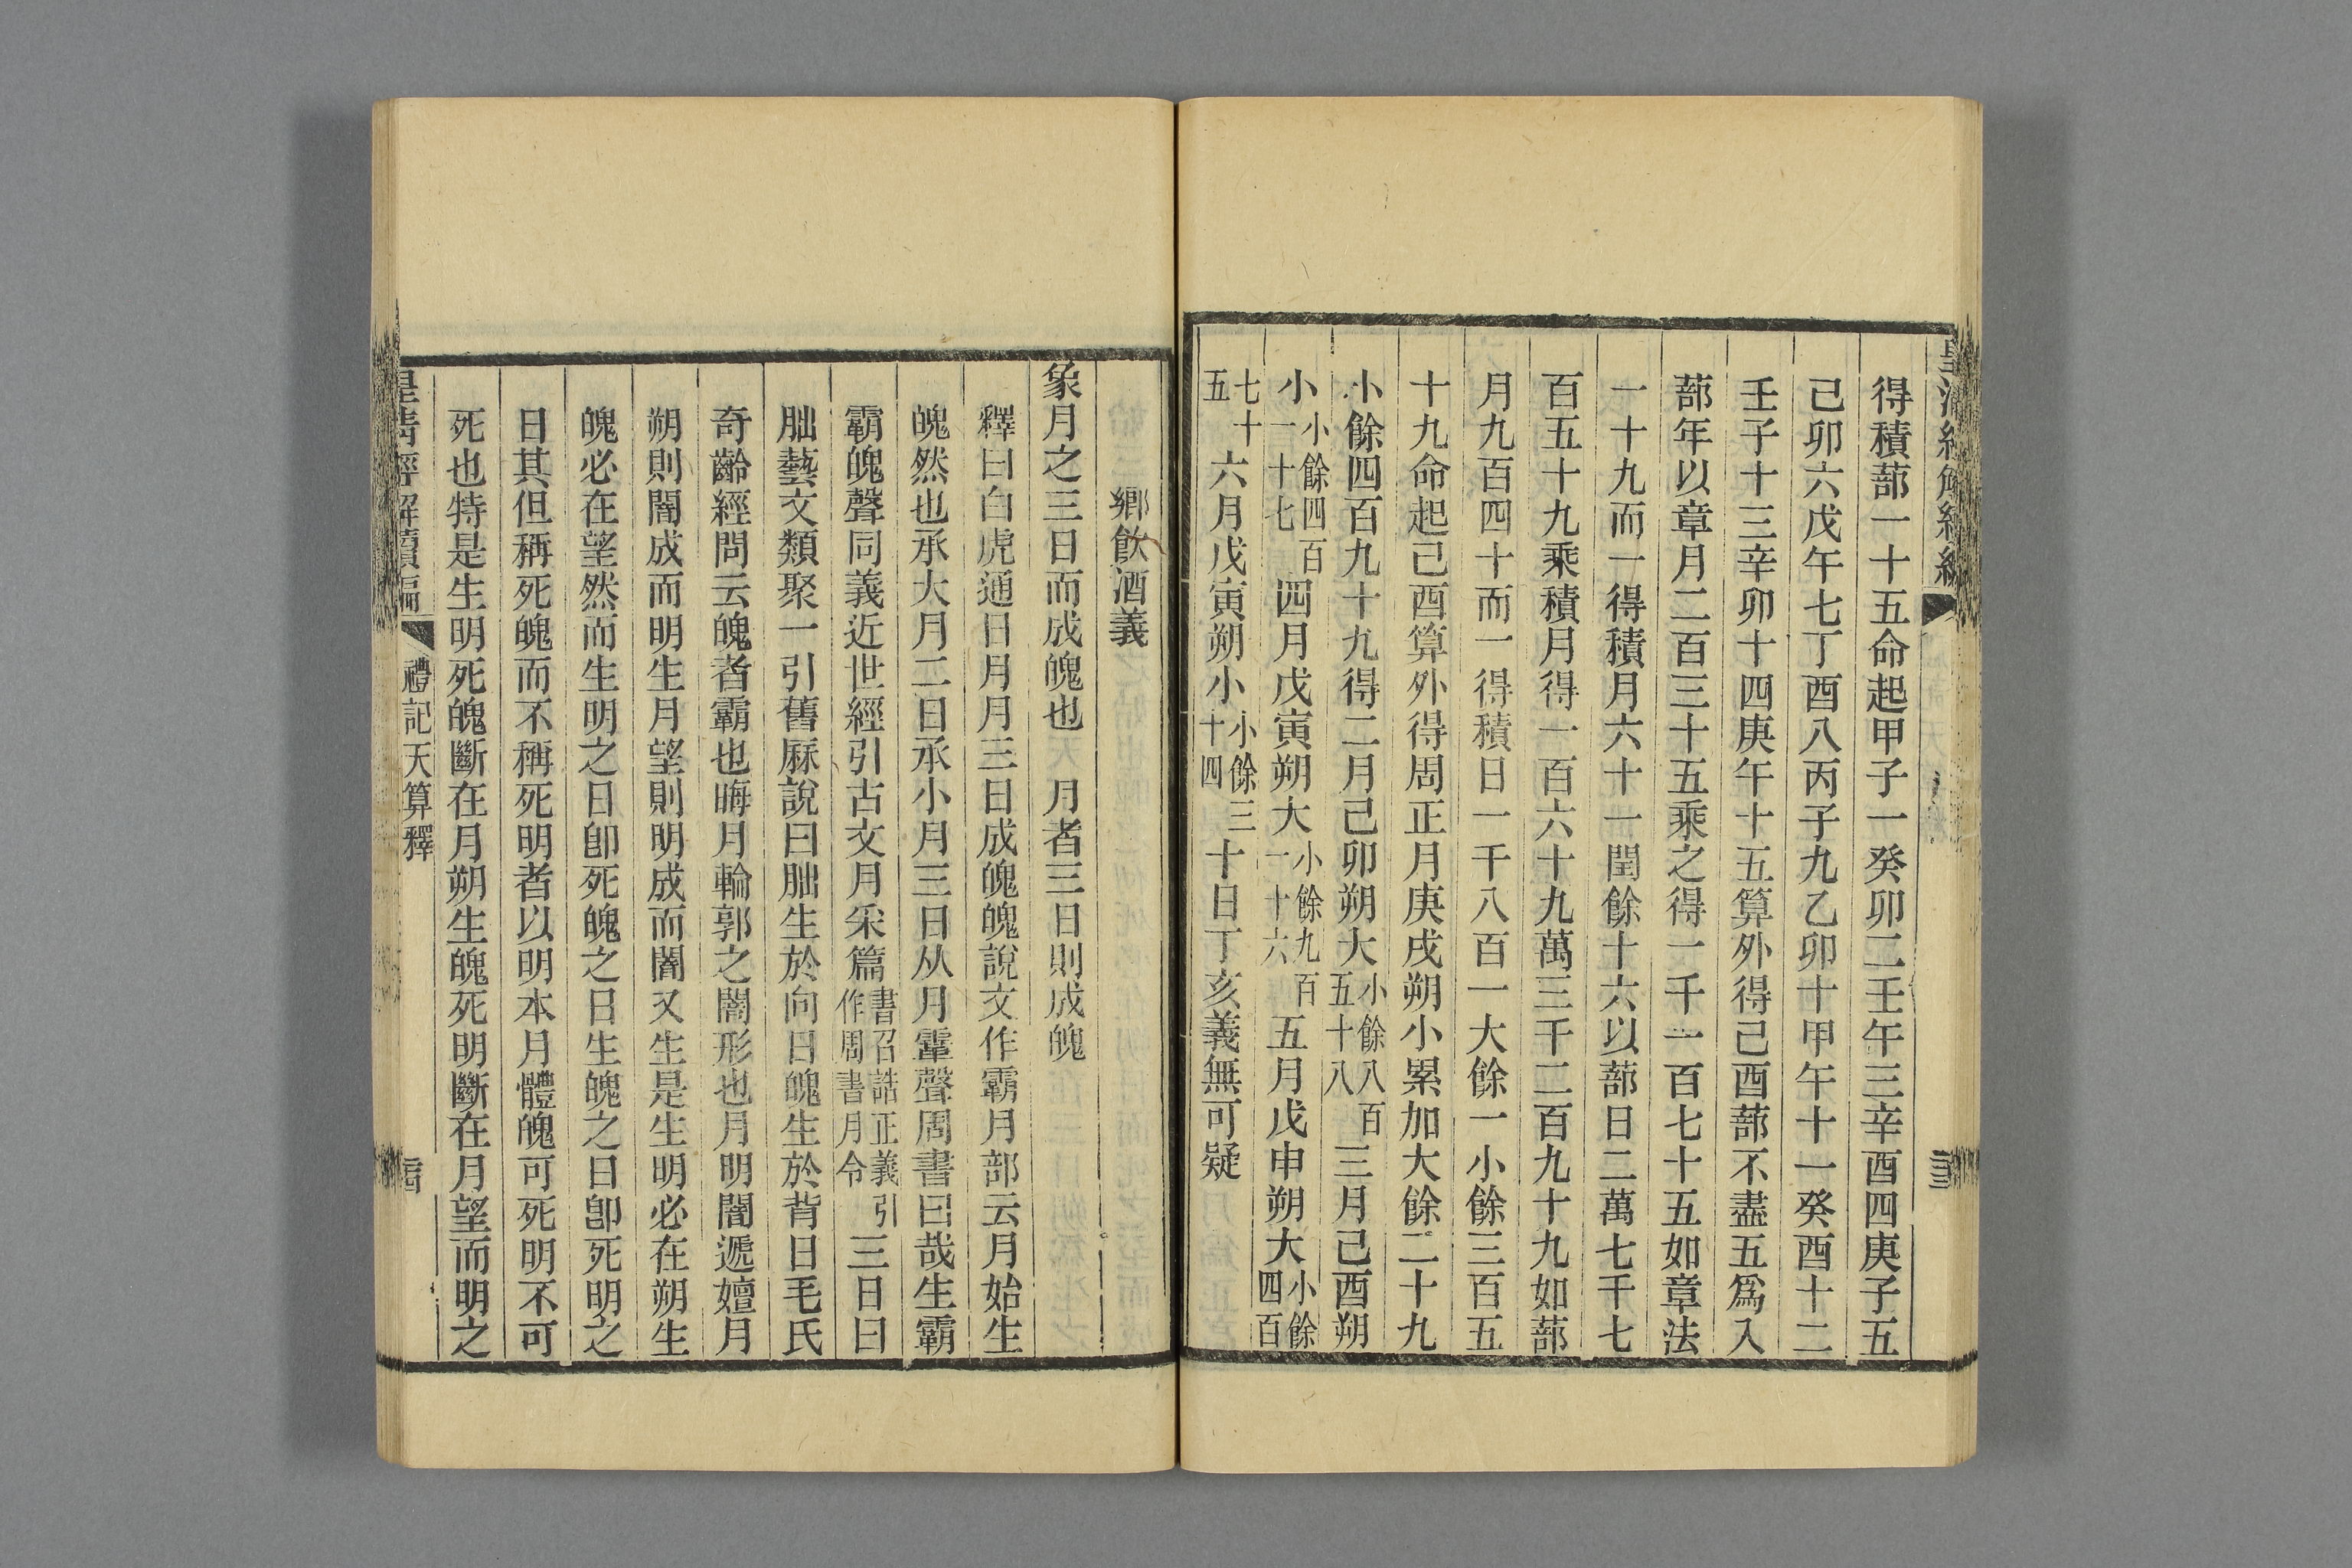 得積蔀一十五命起甲子一癸卯二壬午三辛酉四庚子五
己卯六戊午七丁酉八丙子九乙卯十甲午十一癸酉十二
壬子十三辛卯十四庚午十五算外得己酉蔀不盡五爲入
蔀年以章月二百三十五乘之得一千一百七十五如章法
一十九而一得積月六十一閏餘十六以蔀日二萬七千七
百五十九乘積月得一百六十九萬三千二百九十九如蔀
月九百四十而一得積日一千八百一大餘一小餘三百五
十九命起己酉算外得周正月庚戌朔小累加大餘二十九
小餘四百九十九得二月己卯朔大小餘八百五十八三月己酉朔
小小餘四百一十七四月戊寅朔大小餘九百一十六五月戊申朔大小餘四百
七十五六月戊寅朔小小餘三十四十日丁亥義無可疑
鄉飮酒義
象月之三日而成魄也　月者三日則成魄
釋曰白虎通日月月三日成魄魄說文作霸月部云月始生
魄然也承大月二日承小月三日从月䨣聲周書曰哉生霸
霸魄聲同義近世經引古文月采篇書召誥正義引作周書月令三日曰
朏藝文類聚一引舊厤說曰朏生於向日魄生於背日毛氏
奇齡經問云魄者霸也晦月輪郭之闇形也月明闇遞嬗月
朔則闇成而明生月望則明成而闇又生是生明必在朔生
魄必在望然而生明之日卽死魄之日生魄之日卽死明之
日其但稱死魄而不稱死明者以明本月體魄可死明不可
死也特是生明死魄斷在月朔生魄死明斷在月望而明之
皇清經解續編
禮記天算釋